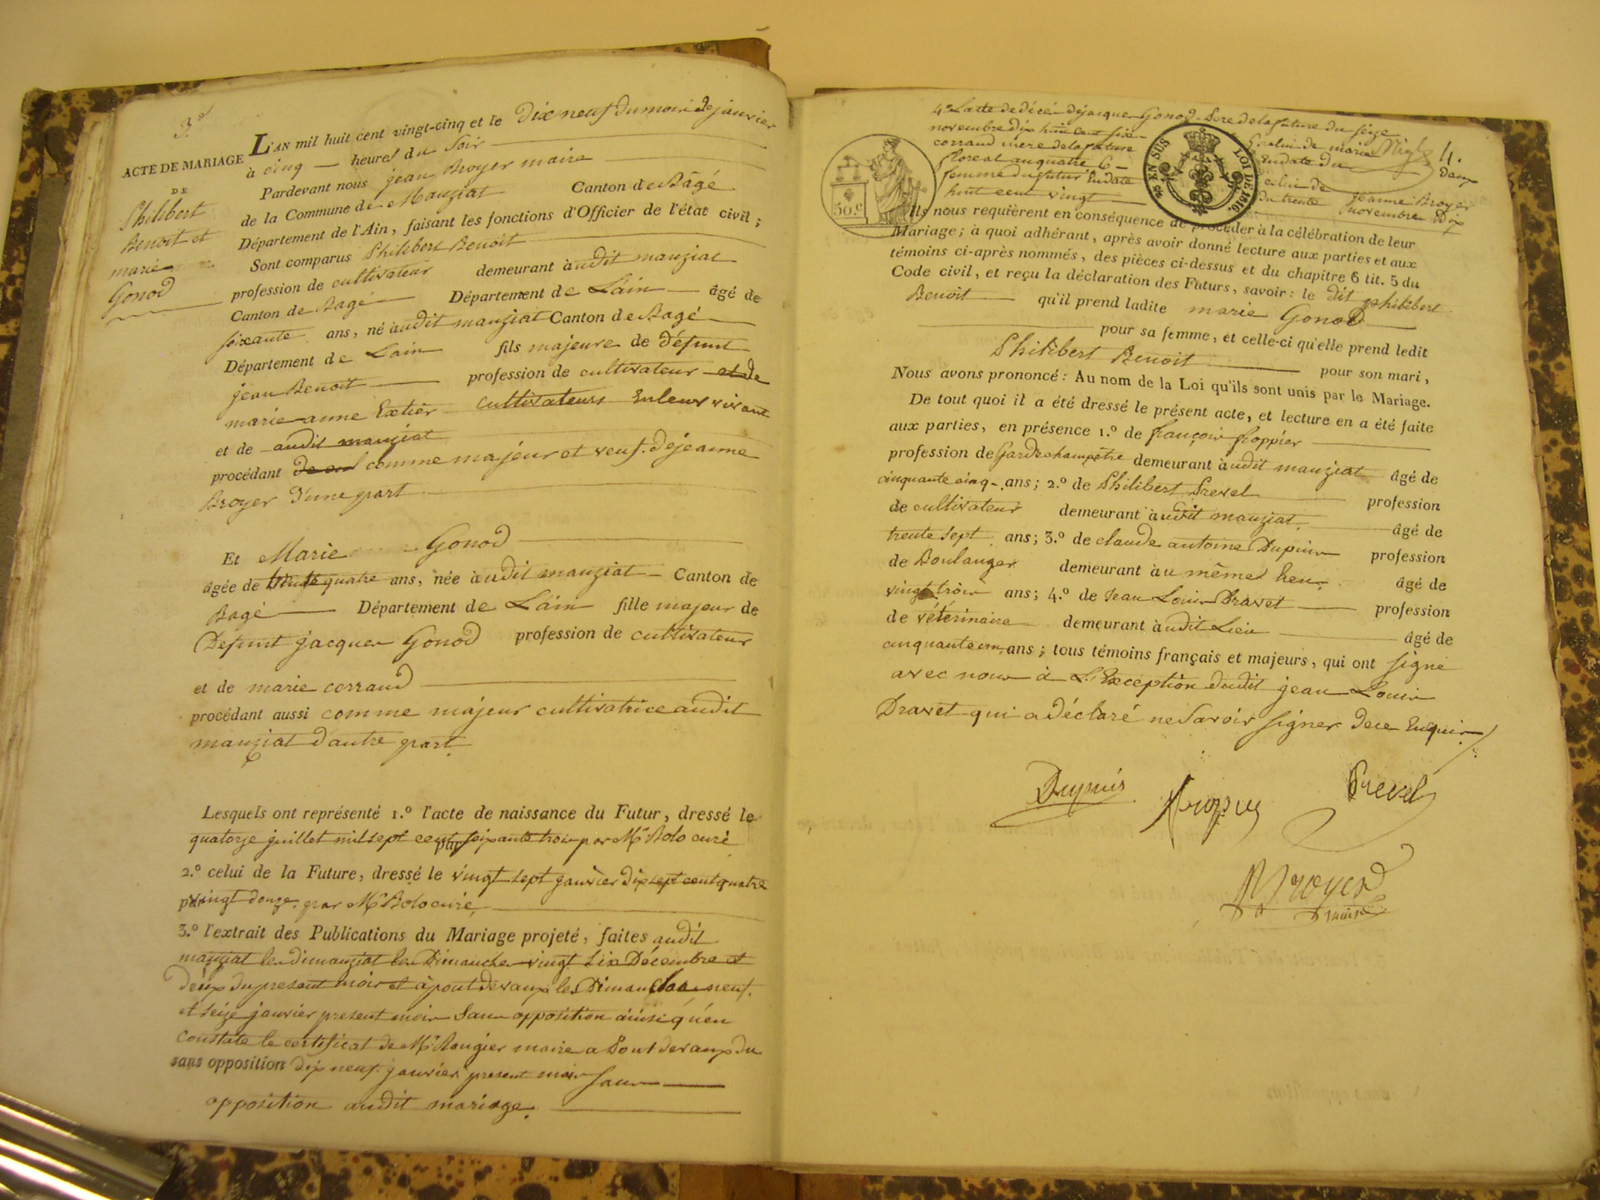 3e
ACTE DE MARIAGE
DE
Philibert
Benoit et
marie
Gonod
L'AN mil huit cent vingt-cinq et le dix neuf du mois de janvier
à cinq heures du soir
Pardevant nous jean Broyer maire
de la Commune de Manziat Canton de Bâgé
Département de l'Ain, faisant les fonctions d'Officier de l'état civil;
Sont comparus Philibert Benoit
profession de cultivateur demeurant audit manziat
Canton de Bagé Département de Lain âgé de
soixante ans, né audit manziat Canton de Bagé
Département de Lain fils majeure de défunt
jean Benoit profession de cultivateur et de
marie anne cultivateurs En leur vivant
et de audit manziat
procédant comme majeur et veuf de jeanne
Broyer d'une part
Et Marie Gonod
âgée de trente quatre ans, née audit manziat Canton de
Bagé Département de Lain fille majeur de
Défunt jacques Gonod profession de cultivateur
et de marie corraud
procédant aussi comme majeur cultivatrice audit
manziat d'autre part.
Lesquels ont représenté 1.º l'acte de naissance du Futur, dressé le
quatorze juillet mil sept cent soixante trois par Mr Bolo curé
2.º celui de la Future, dressé le vingt sept janvier dix sept cent quatre
vingt douze par Mr Bolo curé,
3.º l'extrait des Publications du Mariage projeté, faites audit
manziat les dimanziat les Dimanche vingt six Décembre et
deux du present mois et à pont de vaux les Dimanche neuf
et seize janvier present mois sans opposition ainsi qu'en
constate le certificat de Mr Rougier maire a Pont de vaux du
sans opposition dix neuf janvier present mois sans
opposition audit mariage.
4º L'acte de décé de jacque Gonod Pere de la future du seize
novembre dix huit cent six celui de marie
corraud mere de la future En date du
floreal an quatre celui de jeanne Broyer
femme du futur En date du trente novembre dix
huit cent vingt
4.
deux
50.c
EN SUS
LOI DE 1816
Ils nous requièrent en conséquence de procéder à la célébration de leur
Mariage; à quoi adhérant, après avoir donné lecture aux parties et aux
témoins ci-après nommés, des pièces ci-dessus et du chapitre 6 tit. 5 du
Code civil, et reçu la déclaration des Futurs, savoir: le dit philibert
Benoit qu'il prend ladite marie Gonod
pour sa femme, et celle-ci qu'elle prend ledit
Philibert Benoit pour son mari,
Nous avons prononcé: Au nom de la Loi qu'ils sont unis par le Mariage.
De tout quoi il a été dressé le présent acte, et lecture en a été faite
aux parties, en présence 1.º de françois froppier
profession de Garde champetre demeurant audit manziat âgé de
cinquante cinq ans; 2.º de Philibert Prevel profession
de cultivateur demeurant audit manziat âgé de
trente sept ans; 3.º de claude antoine Dupuis profession
de Boulanger demeurant au même lieu âgé de
vingt trois ans; 4.º de Jean Louis Dravet profession
de véterinaire demeurant audit Lieu âgé de
cinquante un ans; tous témoins français et majeurs, qui ont signé
avec nous à L'Exception dudit jean Louis
Dravet qui a déclaré ne savoir signer de ce Enquis
Dupuis
Prevel
Broyer
maire